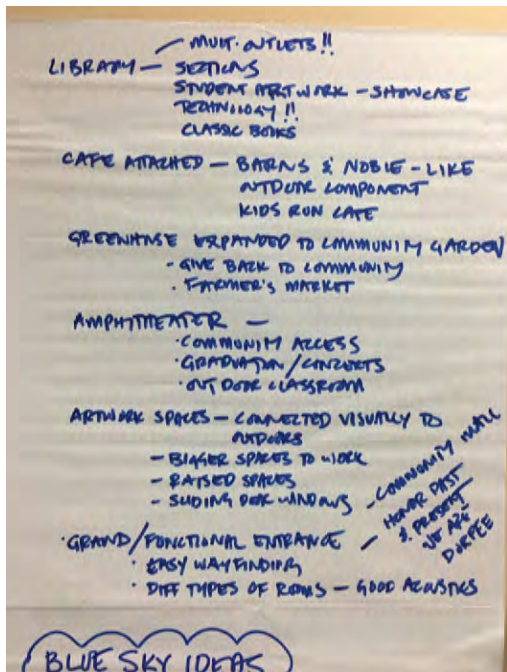 MULT. OUTLETS!!
LIBRARY — SECTIONS
STUDENT ARTWORK - SHOWCASE
TECHNOLOGY!!
CLASSIC BOOKS
CAFE ATTACHED — BARNS & NOBLE - LIKE
OUTDOOR COMPONENT
KIDS RUN CAFE
GREENHOUSE EXPANDED TO COMMUNITY GARDEN
- GIVE BACK TO COMMUNITY
· FARMER'S MARKET
AMPHITHEATER —
· COMMUNITY ACCESS
· GRADUATION/CONCERTS
· OUTDOOR CLASSROOM
ARTWORK SPACES — CONNECTED VISUALLY TO
OUTDOORS
- BIGGER SPACES TO WORK
- RAISED SPACES
- SLIDING DOOR WINDOWS
· GRAND/FUNCTIONAL ENTRANCE
- COMMUNITY
HONOR PAST
& PRESENT
WE ARE
DURFEE
· EASY WAYFINDING
· DIFF TYPES OF ROOMS — GOOD ACOUSTICS
BLUE SKY IDEAS